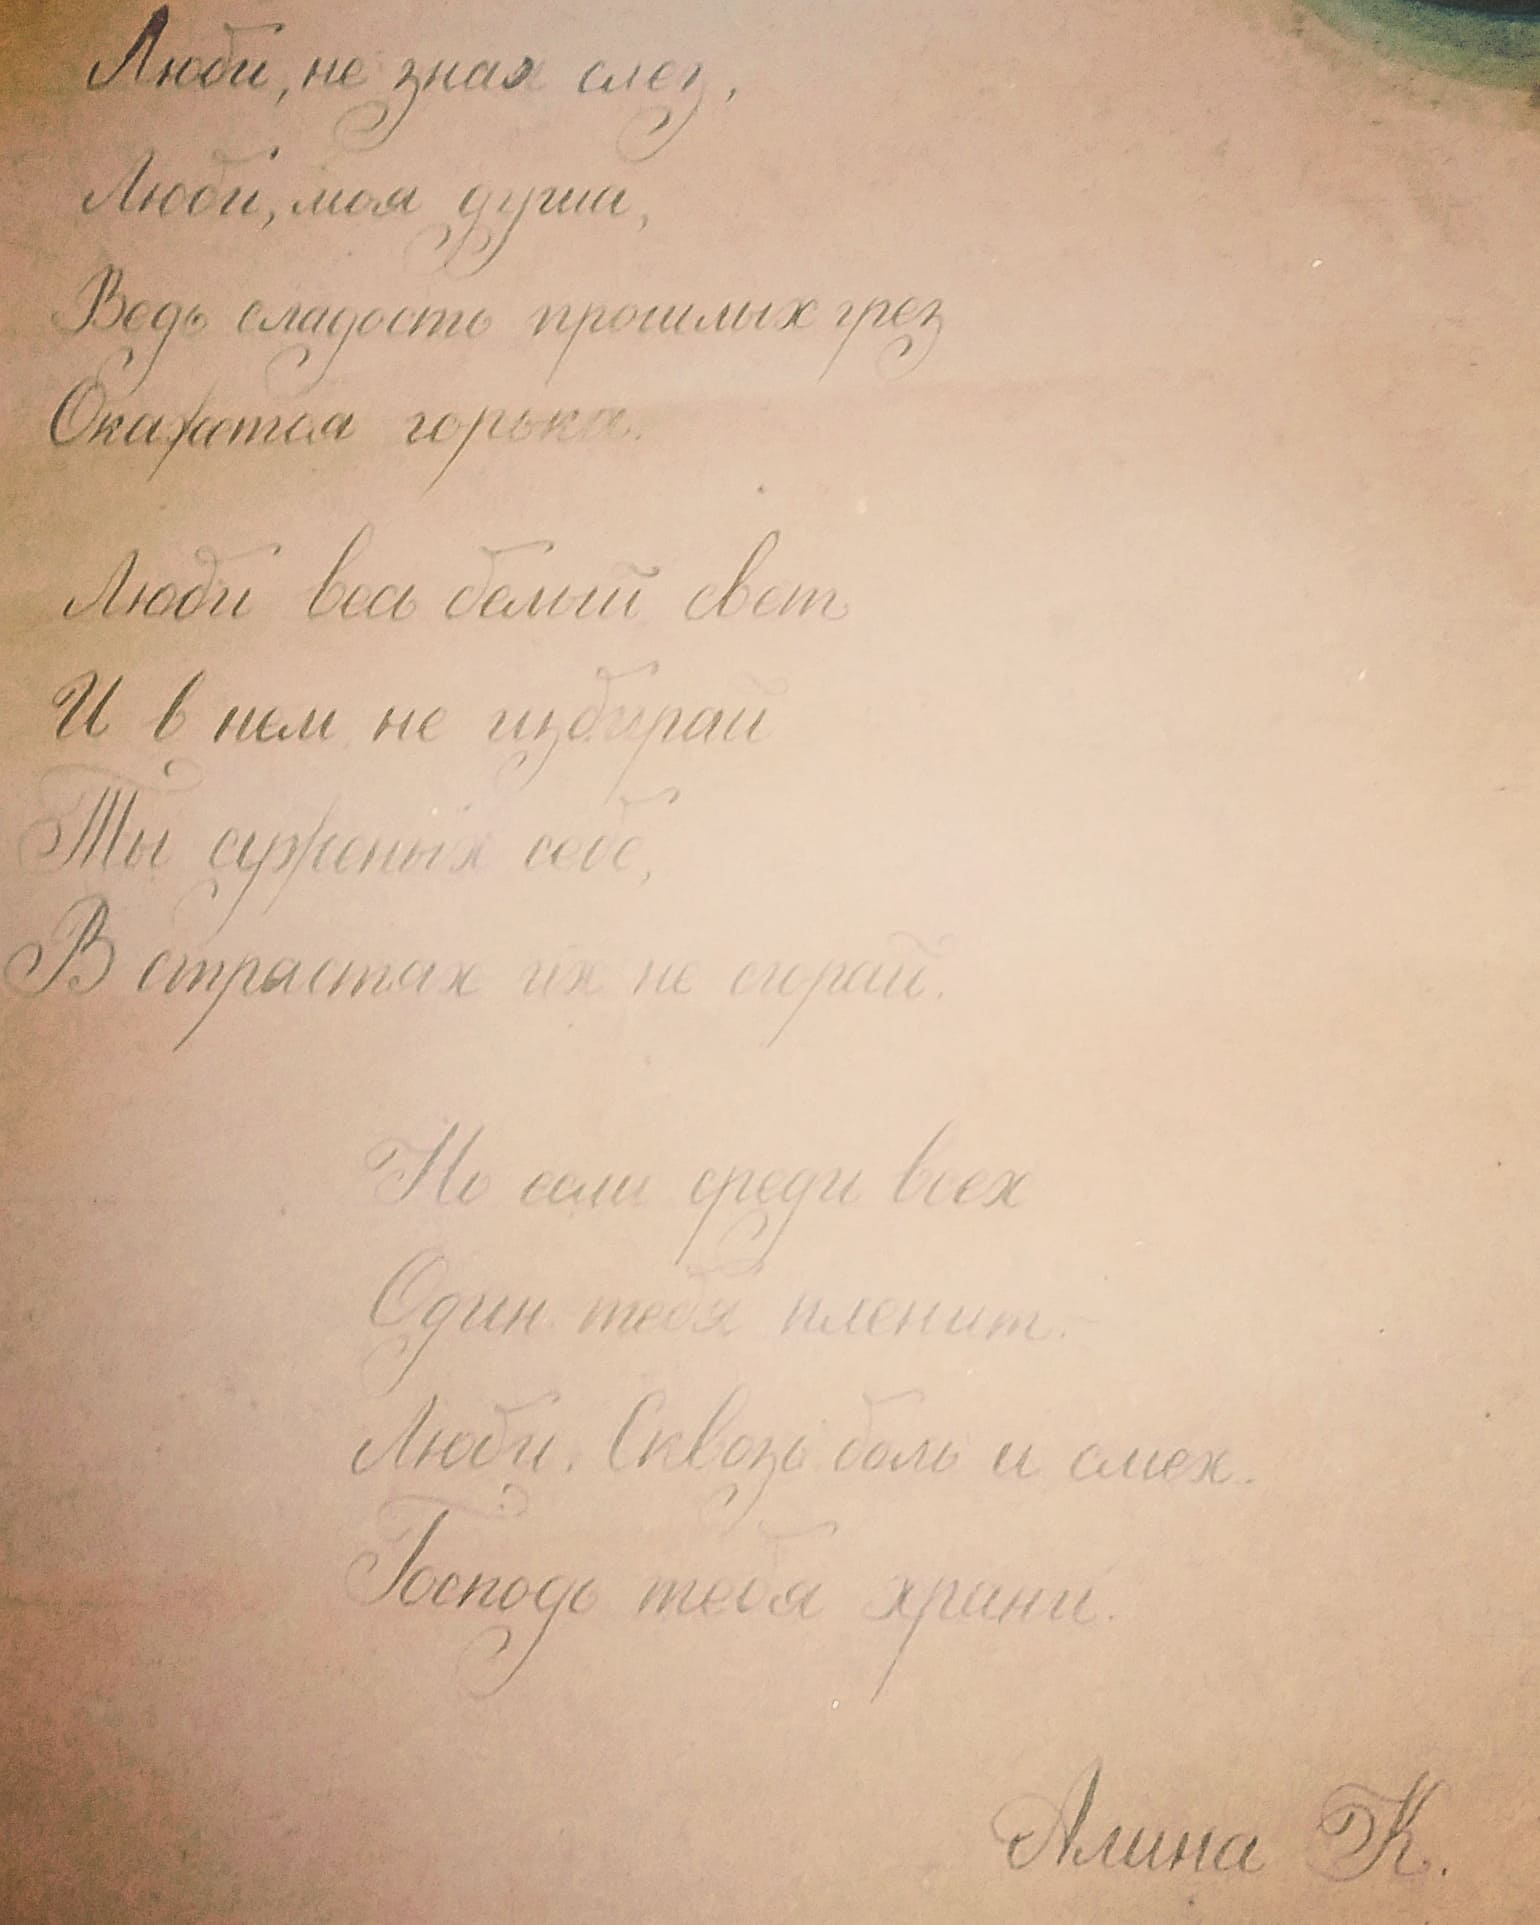 Люби, не зная слез,
Люби, моя душа,
Ведь сладость прошлых грез
Окажется горька.
Люби весь белый свет
И в нем не избирай
Ты суженых себе,
В страстях их не сгорай.
Но если среди всех
Один тебя пленит -
Люби. Сквозь боль и смех.
Господь тебя храни.
Алина К.